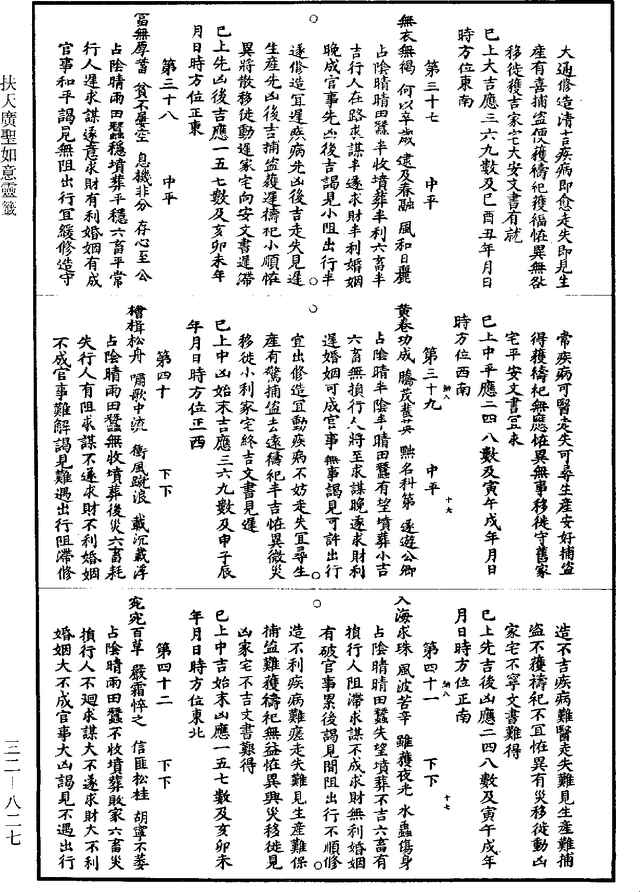 大通修造清吉疾病即愈走失即見生
產有喜捕盜便獲禱祀獲福怪異無咎
移徙獲吉家宅大安文書有就
巳上大吉應三六九數及巳酉丑年月日
時方位東南
第三十七 中平
無衣無褐 何以卒歲 逮及春融 風和日麗
占陰晴晴田蠶半收墳葬半利六畜半
吉行人在路求謀半遂求財半利婚姻
晚成官事先凶後吉謁見小阻出行半
遂修造宜遲疾病先凶後吉走失見遲
生產先凶後吉捕盜獲遲禱祀小順怪
異將散移徙動遲家宅向安文書遲滯
巳上先凶後吉應一五七數及亥卯未年
月日時方位正東
第三十八 中平
富無厚蓄 貧不屢空 息機非分 存心至公
占陰晴雨田蠶穩墳葬平穩六畜平常
行人遲求謀遂意求財有利婚姻有成
官事和平謁見無阻出行宜緩修造守
常疾病可醫走失可尋生產安好捕盜
得獲禱祀無應怪異無事移徙守舊家
宅平安文書宜求
巳上中平應二四八數及寅午戌年月日
時方位西南
第三十九 中平
黃卷功成 騰茂蜚英 點名科第 遂遊公卿
占陰晴半陰半晴田蠶有望墳葬小吉
六畜無損行人將至求謀晚遂求財利
遲婚姻可成官事無事謁見可許出行
宜出修造宜動疾病不妨走失宜尋生
產有驚捕盜去遠禱祀半吉怪異微災
移徙小利家宅終吉文書見遲
巳上中凶始末吉應三六九數及申子辰
年月日時方位正西
第四十 下下
檜楫松舟 嘯歌中流 衝風蹴浪 載沉載浮
占陰晴雨田蠶無收墳葬後災六畜耗
失行人有阻求謀不遂求財不利婚姻
不成官事難解謁見難遇出行阻滯修
造不吉疾病難醫走失難見生產難捕
盜不獲禱祀不宜怪異有災移徙動凶
家宅不寧文書難得
巳上先吉後凶應二四八數及寅午戌年
月日時方位正南
第四十一 下下
入海求珠 風波苦辛 雖獲夜光 水蟲傷身
占陰晴晴田蠶失望墳葬不吉六畜有
損行人阻滯求謀不成求財無利婚姻
有破官事累後謁見間阻出行不順修
造不利疾病難瘥走失難見生產難保
捕盜難獲禱祀無益怪異興災移徙見
凶家宅不吉文書難得
巳上中吉始末凶應一五七數及亥卯未
年月日時方位東北
第四十二 下下
宛宛百草 嚴霜悴之 信匪松桂 胡寧不萎
占陰晴雨田蠶不收墳葬敗家六畜災
損行人不迴求謀大不遂求財大不利
婚姻大不成官事大凶謁見不遇出行
扶天廣聖如意靈籤
三二—八二七